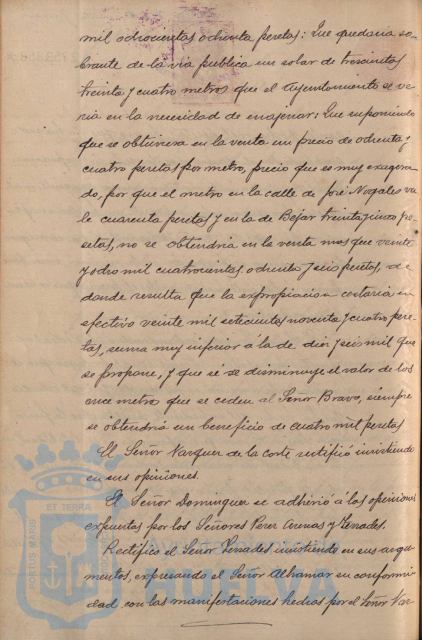 mil ochocientas ochenta pesetas: Que quedaria so-
brante de la via publica un solar de trescientos
treinta y cuatro metros que el Ayuntamiento se ve-
ria en la necesidad de enajenar: Que suponiendo
que se obtuviera en la venta un precio de ochenta y
cuatro pesetas por metro, precio que es muy exagera-
do, por que el metro en la calle de José Nogales va-
le cuarenta pesetas y en la de Bejar treinta y cinco pe-
setas, no se obtendria en la venta mas que veinte
y ocho mil cuatrocientas ochenta y seis pesetas, de
donde resulta que la expropiacion costaria en
efectivo veinte mil setecientas noventa y cuatro pese-
tas, suma muy inferior á la de diez y seis mil que
se propone, y que si se disminuye el valor de los
once metros que se ceden al Señor Bravo, siempre
se obtendria un beneficio de cuatro mil pesetas
El Señor Vazquez de la Corte rectificó insistiendo
en sus opiniones.
El Señor Dominguez se adhirió á las opiniones
expuestas por los Señores Perez Arenas y Venades.
Rectificó el Señor Venades insistiendo en sus argu-
mentos, expresando el Señor Alhamar su conformi-
dad con las manifestaciones hechas por el Señor Vaz-
PORTUS MARIS
ET TERRA